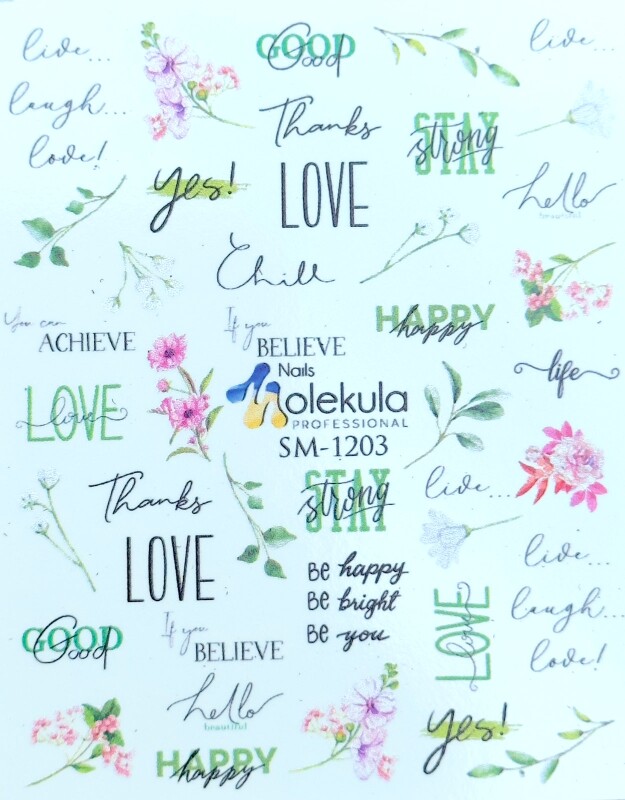 live...
laugh...
love!
GOOD
Good
live...
Thanks
LOVE
STAY
strong
yes!
hello
beautiful
Chill
HAPPY
happy
You can
ACHIEVE
If you
BELIEVE
life
LOVE
love
Nails
Molekula
PROFESSIONAL
SM-1203
Thanks
LOVE
STAY
strong
live...
Be happy
Be bright
Be you
LOVE
love
live...
laugh...
love!
GOOD
Good
If you
BELIEVE
hello
beautiful
HAPPY
happy
yes!